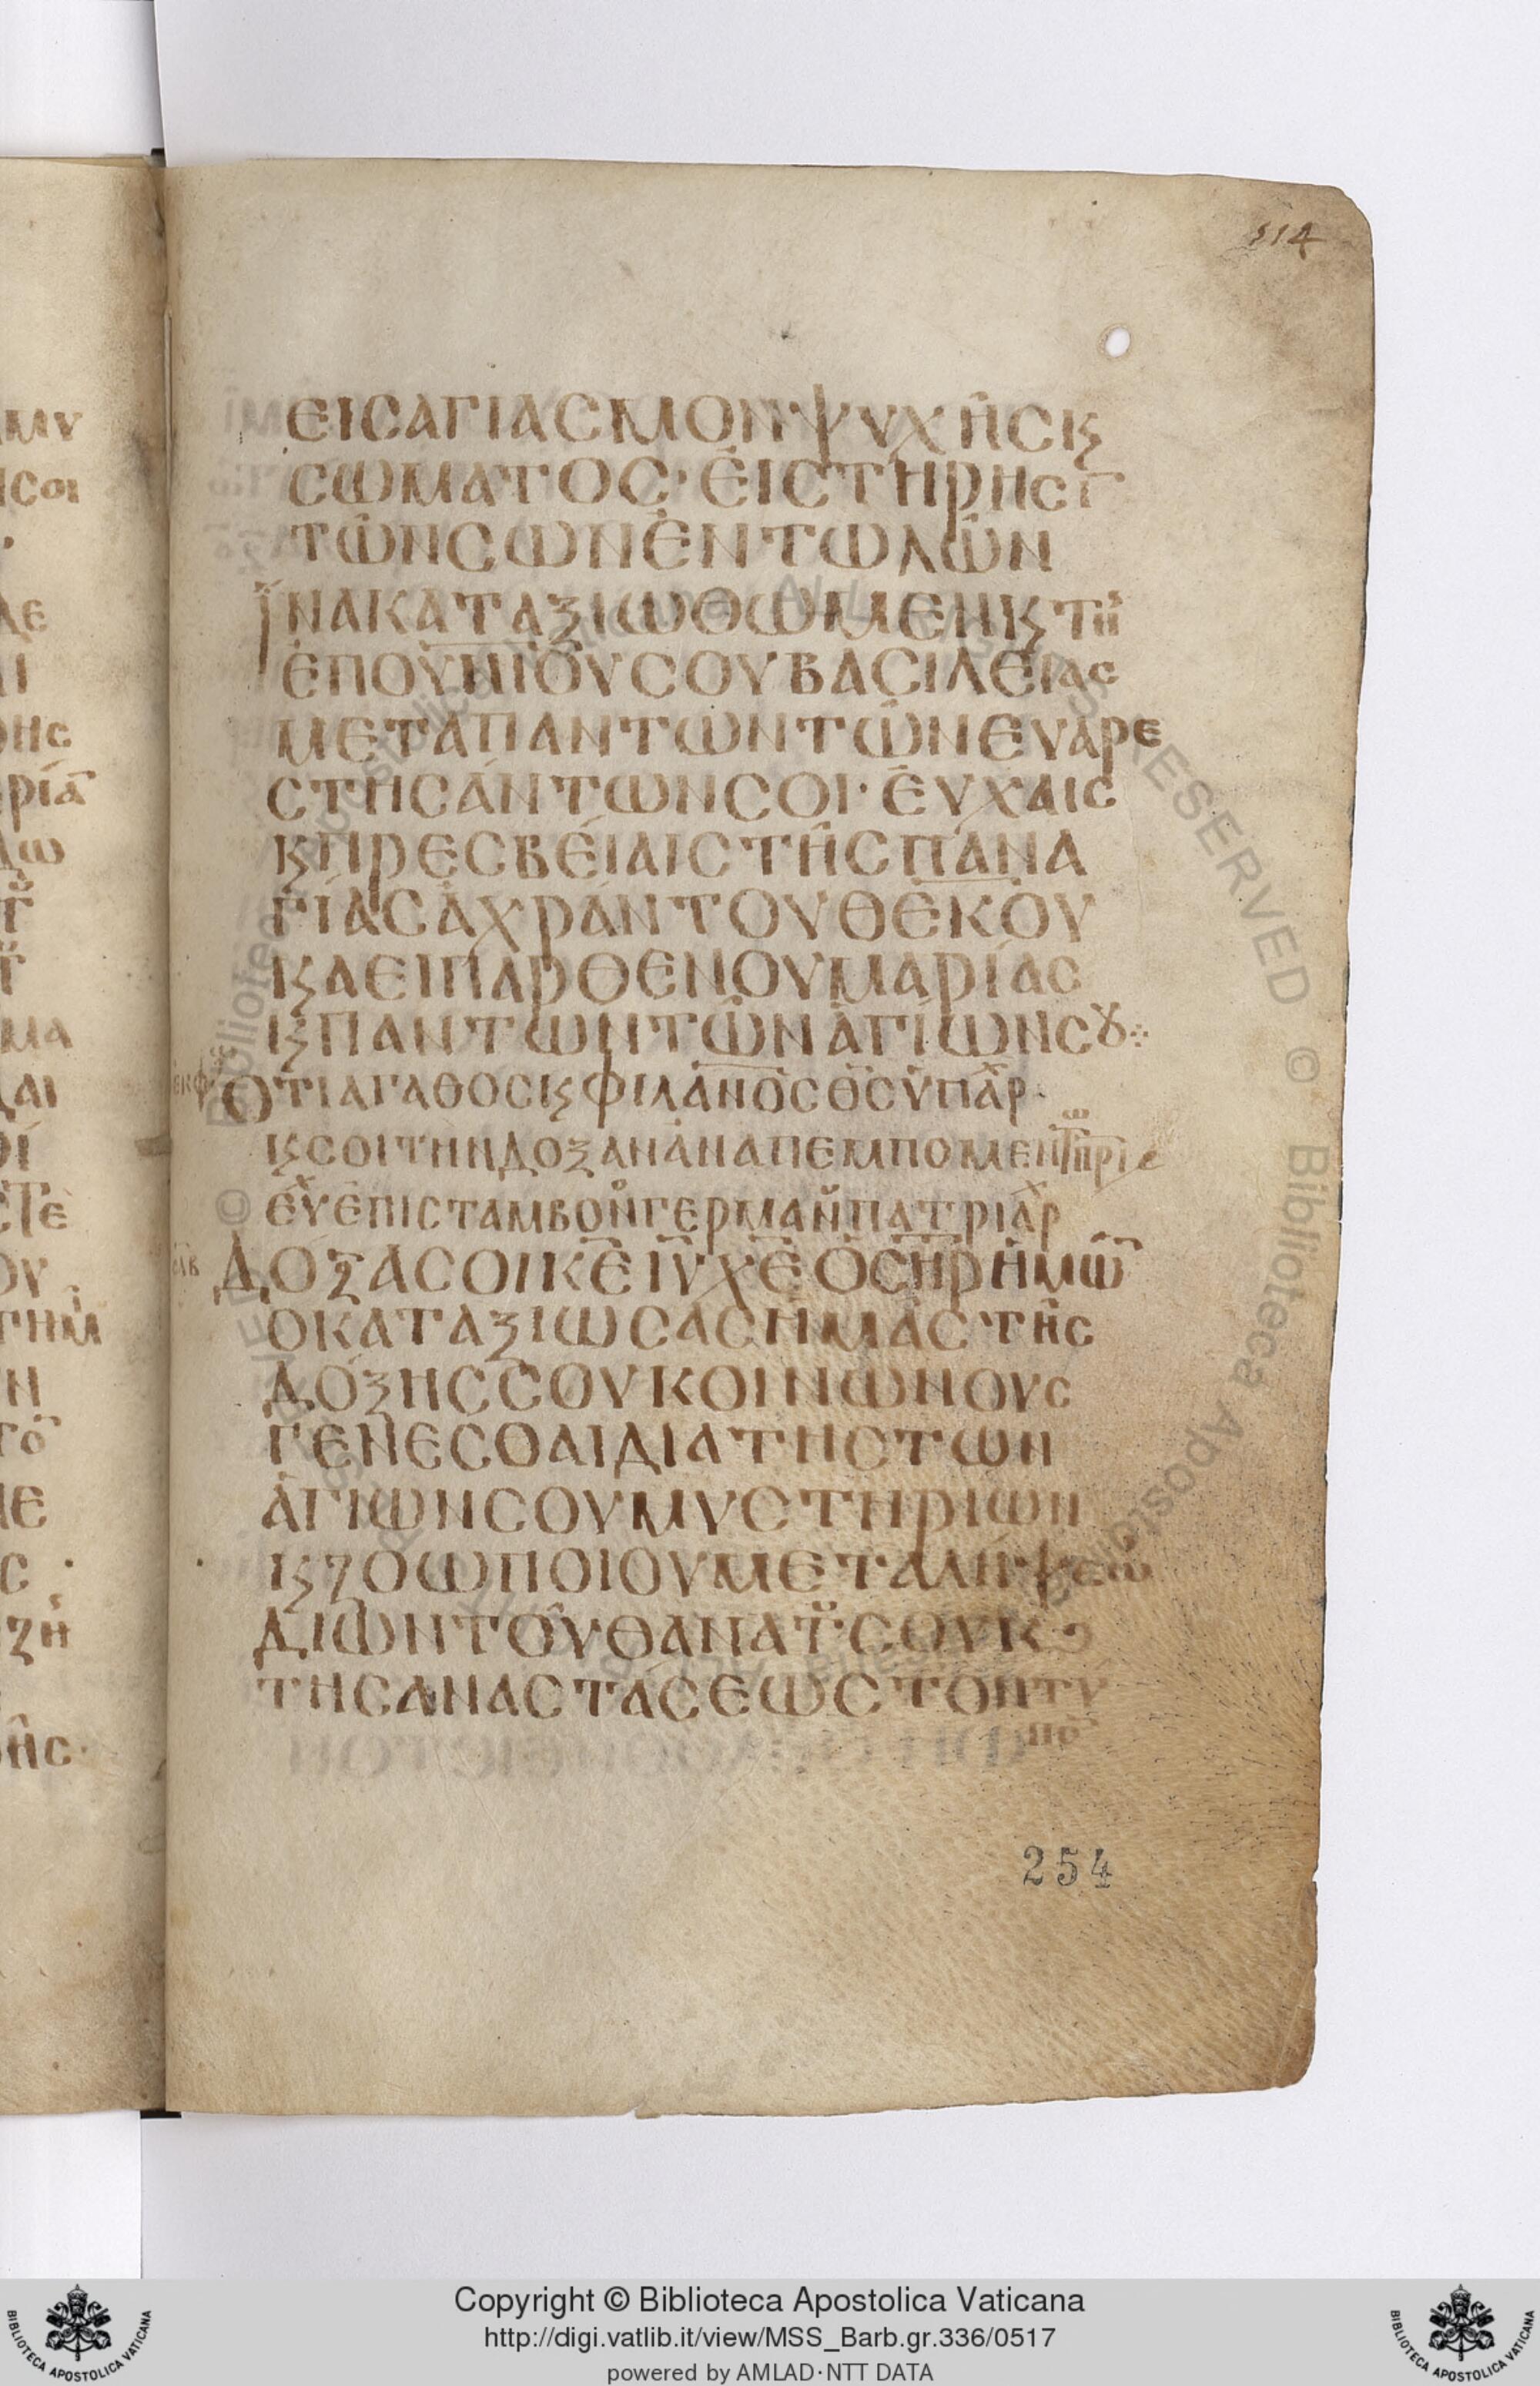 514
ΕΙΣΑΓΙΑΣΜΟΝ·ΨΥΧΗ͂ΣΚϚ
ΣΩΜΑΤΟΣ· ΕΙΣΤΗΡΗΣΓ
ΤΩΝΣΩΝΕΝΤΩΛΩΝ
ΙΝΑΚΑΤΑΞΙΩΘΩΜΕΝΚϚΤΗ
ΕΠΟΥΝΙΟΥΣΟΥΒΑΣΙΛΕΙΑΣ
ΜΕΤΑΠΑΝΤΩΝΤΩΝΕΥΑΡΕ
ΣΤΗΣΑΝΤΩΝΣΟΙ· ΕΥΧΑΙΣ
ΚϚΠΡΕΣΒΕΙΑΙΣΤΗΣΠΑΝΑ
ΓΙΑΣΑΧΡΑΝΤΟΥΘΕΚΟΥ
ΚϚΑΕΙΠΑΡΘΕΝΟΥΜΑΡΙΑΣ
ΚϚΠΑΝΤΩΝΤΩΝΑΓΙΩΝΣȢ
ΕΚΦ ΟΤΙΑΓΑΘΟΣΚϚΦΙΛΑΝΟΣΘΣΥΠΑΡΧ
ΚϚΣΟΙΤΗΝΔΟΞΑΝΑΝΑΠΕΜΠΟΜΕΝΤΩΠΡΙ
ΕΥΧΕΠΙΣΤΑΜΒΟΝΓΕΡΜΑΝΠΑΤΡΙΑΡΧ
ΔΟΞΑΣΟΙΚΕΙΥΧΕΟΣΗΡΗΜΩ
ΟΚΑΤΑΞΙΩΣΑΣΗΜΑΣΤΗΣ
ΔΟΞΗΣΣΟΥΚΟΙΝΩΝΟΥΣ
ΓΕΝΕΣΘΑΙΔΙΑΤΗΣΤΩΝ
ΑΓΙΩΝΣΟΥΜΥΣΤΗΡΙΩΝ
ΚϚΖΟΩΠΟΙΟΥΜΕΤΑΛΗΨΕΩ
ΔΙΩΝΤΟΥΘΑΝΑΤȢΣΟΥΚϚ
ΤΗΣΑΝΑΣΤΑΣΕΩΣΤΟΝΤΥ
ΠΟ
254
Copyright © Biblioteca Apostolica Vaticana
http://digi.vatlib.it/view/MSS_Barb.gr.336/0517
powered by AMLAD·NTT DATA